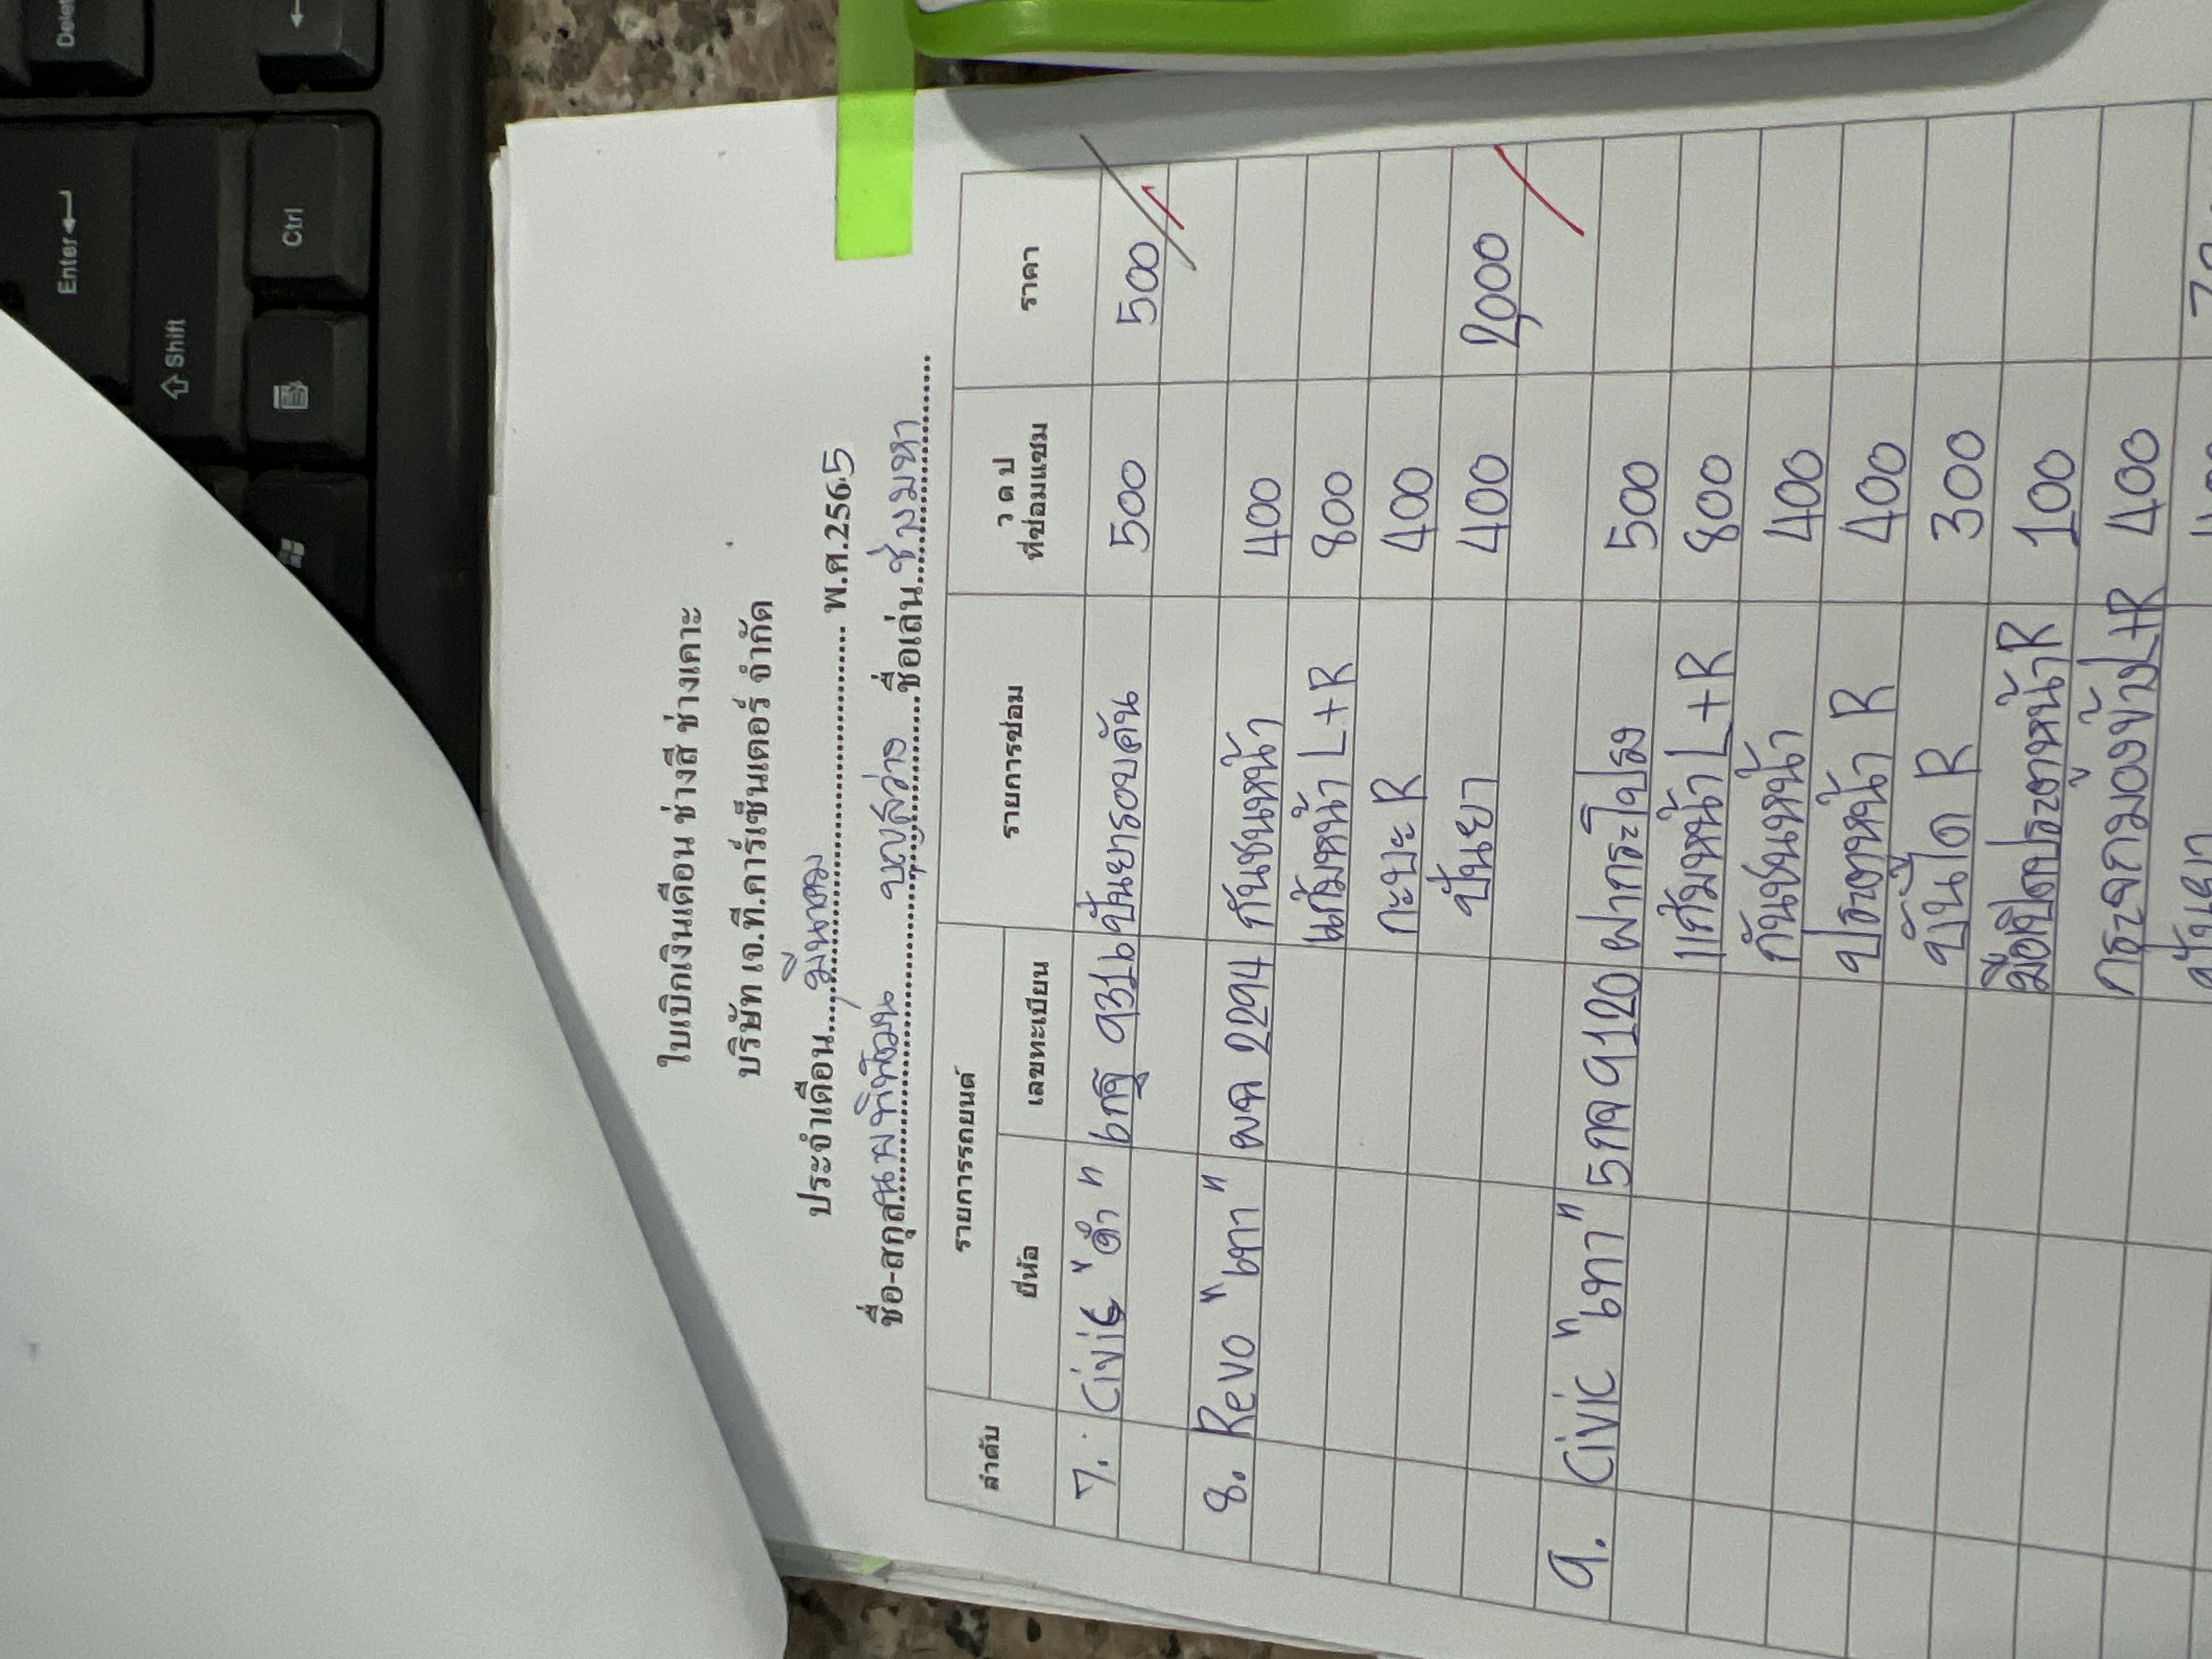 Delete
Enter
Shift
Ctrl
ใบเบิกเงินเดือน ช่างสี ช่างเคาะ
บริษัท เจ.ที.คาร์เซ็นเตอร์ จำกัด
ประจำเดือน มีนาคม พ.ศ.2565
ชื่อ-สกุล บุญสว่าง ชื่อเล่น ช่างมหา
ลำดับ รายการรถยนต์ รายการซ่อม ว ด ป ที่ซ่อมแซม ราคา
ยี่ห้อ เลขทะเบียน
7. Civic "ดำ" 6กฐ 9316 ปั่นยารอบคัน 500 500
8. Revo "เทา" ผฉ 2294 กันชนหน้า 400
แก้มหน้า L+R 800
กะบะ R 400
ปั่นยา 400 2,000
9. Civic "เทา" 5กจ 9120 ฝากระโปรง 500
แก้มหน้า L+R 800
กันชนหน้า 400
ประตูหน้า R 400
บันได R 300
มือเปิดประตูหน้า R 100
กระจกมองข้าง L+R 400
ปั่นยา